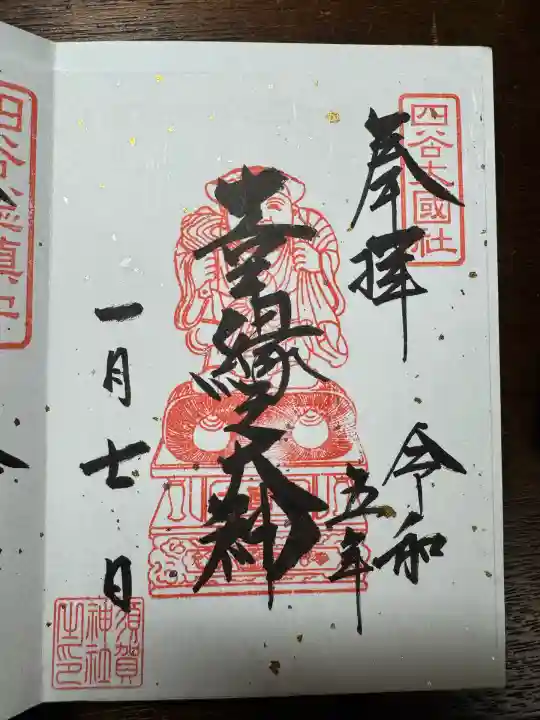 四谷大國社
奉拝
令和
五年
喜縁之大神
一月七日
須賀
神社
之印
四谷